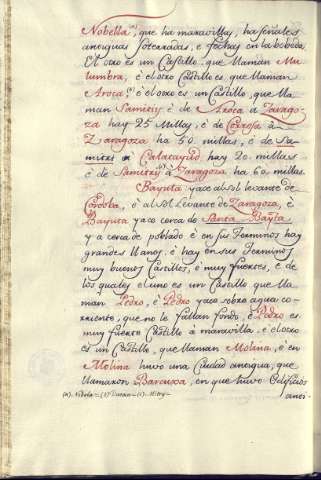 Nobella (a), que ha maravillas, ha señales
antiguas soterradas, e fechas en la boboda.
El otro es un Castillo, que llaman Mu
lumbra, è el otro Castillo es que llaman
Aroca; è el otro es un Castillo, que lla-
man Samitry, è de Aroca a Zarago-
za hay 25 Millas, è de Carrosa à
Zaragoza ha 50 millas, è de Sa-
mitri a Calatayud hay 20 millas
è de Samitry à Zaragoza ha 60 millas.
Bayuta yace al sol levante de
Cordoba, è al sol Levante de Zaragoza, è
Bayuta yace cerca de Santa Bayta
y a cerca de poblado è en sus Terminos hay
grandes llanos, è hay en sus Terminos
muy buenos Castillos, è muy fuertes, è de
los quales el uno es un Castillo que lla
man Pedro, è Pedro yace sobre agua co-
rriente, que no le fallan fondo, è Pedro es
muy fuerte Castillo à maravilla, è el otro
es un Castillo, que llaman Molina, è en
Molina huvo una Ciudad antigua, que
llamaron Barcusa, en que huvo Edificios
anti-